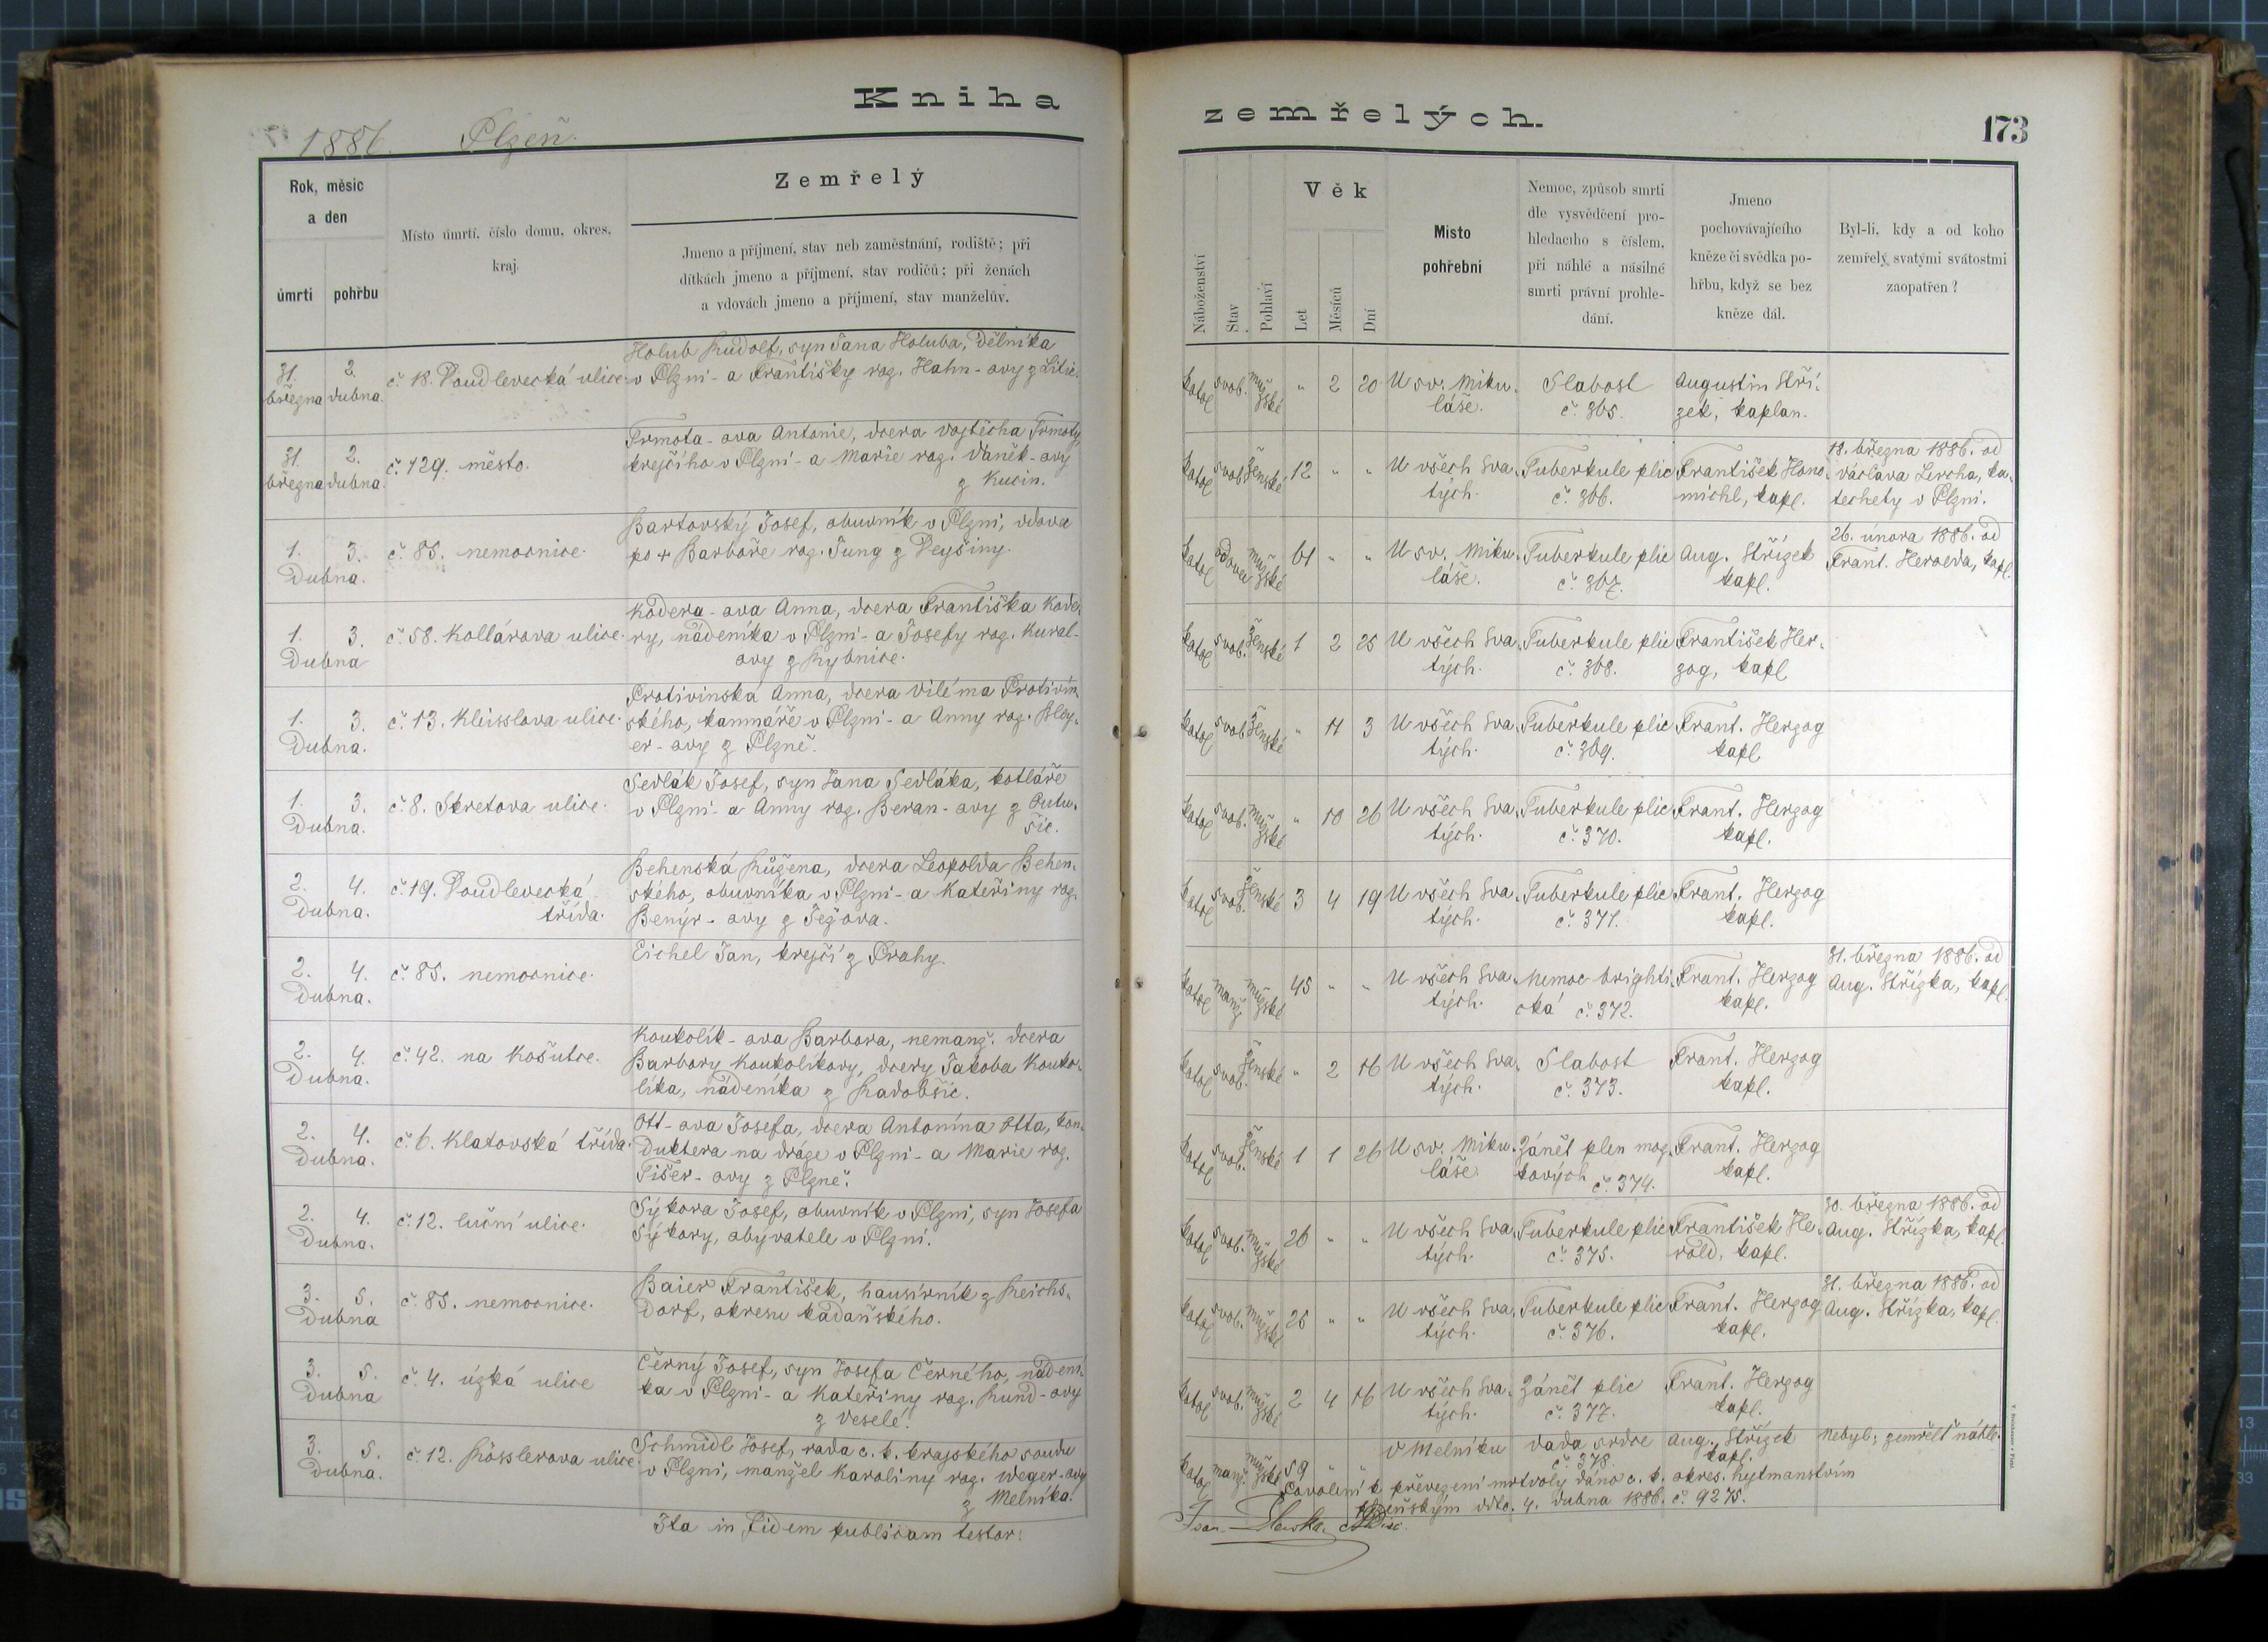 Kniha
1886. Plzeň.
Rok, měsíc
a den
úmrtí
pohřbu
Místo úmrtí, číslo domu, okres,
kraj.
Zemřelý
Jmeno a příjmení, stav neb zaměstnání, rodiště; při
dítkách jmeno a příjmení, stav rodičů; při ženách
a vdovách jmeno a příjmení, stav manželův.
31. března
2. dubna.
č. 18. Doudlevecká ulice.
Holub Rudolf, syn Jana Holuba, dělníka
v Plzni - a Františky roz. Hahn - ovy z Litic.
31. března
2. dubna.
č. 129. město.
Trmota - ova Antonie, dcera Vojtěcha Trmoty,
krejčího v Plzni - a Marie roz. Vaněk - ovy
z Kucin.
1. 3.
Dubna.
č. 85. nemocnice.
Bartovský Josef, obuvník v Plzni, vdova
po + Barboře roz. Jung z Dejšiny.
1. 3.
Dubna
č. 58. Kollárova ulice.
Kodera - ova Anna, dcera Františka Kode-
ry, nádeníka v Plzni - a Josefy roz. Kural-
ovy z Rybnice.
1. 3.
Dubna.
č. 13. Kleisslova ulice.
Protivinská Anna, dcera Viléma Protivín-
ského, kamnáře v Plzni - a Anny roz. Bley-
er - ovy z Plzně.
1. 3.
Dubna.
č. 8. Skretova ulice.
Sedlák Josef, syn Jana Sedláka, kotláře
v Plzni - a Anny roz. Beran - ovy z Outu-
šic.
2. 4.
Dubna.
č. 19. Doudlevecká
třída.
Behenská Růžena, dcera Leopolda Behen-
ského, obuvníka v Plzni - a Kateřiny roz.
Benýr - ovy z Ježova.
2. 4.
Dubna.
č. 85. nemocnice.
Eichel Jan, krejčí z Prahy.
2. 4.
Dubna.
č. 42. na Košutce.
Koukolík - ova Barbora, nemanž. dcera
Barbory Koukolíkovy, dcery Jakoba Kouko-
líka, nádeníka z Radobšic.
2. 4.
Dubna.
č. 6. Klatovská třída.
Ott - ova Josefa, dcera Antonína Otta, kon-
duktera na dráze v Plzni - a Marie roz.
Tišer - ovy z Plzně.
2. 4.
Dubna.
č. 12. luční ulice.
Sýkora Josef, obuvník v Plzni, syn Josefa
Sýkory, obyvatele v Plzni.
3. 5.
Dubna
č. 85. nemocnice.
Baier František, hausírník z Reichs-
dorf, okresu kadaňského.
3. 5.
Dubna
č. 4. úzká ulice
Černý Josef, syn Josefa Černého, nádení-
ka v Plzni - a Kateřiny roz. Kund - ovy
z Veselé.
3. 5.
Dubna.
č. 12. Kösslerova ulice
Schmidl Josef, rada c. k. krajského soudu
v Plzni, manžel Karoliny roz. Weger - ovy
z Melníka.
Ita in fidem publicam testor:
zemřelých.
173
Náboženství
Stav
Pohlaví
Věk
Let
Měsíců
Dní
Místo
pohřební
Nemoc, způsob smrti
dle vysvědčení pro-
hledacího s číslem,
při náhlé a násilné
smrti právní prohle-
dání.
Jmeno
pochovávajícího
kněze či svědka po-
hřbu, když se bez
kněze dál.
Byl-li, kdy a od koho
zemřelý svatými svátostmi
zaopatřen?
katol svob. mužské " 2 20
U sv. Miku-
láše.
Slabost
č. 365.
Augustin Stří-
zek, kaplan.
katol svob ženské 12 " "
U všech Sva-
tých.
Tuberkule plic
č. 366.
František Hono-
michl, kapl.
18. března 1886. od
Václava Lercha, ka-
techety v Plzni.
katol vdovec mužské 61 " "
U sv. Miku-
láše.
Tuberkule plic
č. 367.
Aug. Střízek
kapl.
26. února 1886. od
Frant. Herolda, kapl.
katol svob. ženské 1 2 25
U všech Sva-
tých.
Tuberkule plic
č. 368.
František Her-
zog, kapl
katol svob ženské " 11 3
U všech Sva-
tých.
Tuberkule plic
č. 369.
Frant. Herzog
kapl
katol svob. mužské " 10 26
U všech Sva-
tých.
Tuberkule plic
č. 370.
Frant. Herzog
kapl.
katol svob. ženské 3 4 19
U všech Sva-
tých.
Tuberkule plic
č. 371.
Frant. Herzog
kapl.
katol manž mužské 45 " "
U všech Sva-
tých.
Nemoc brighti-
cká č. 372.
Frant. Herzog
kapl.
31. března 1886. od
Aug. Střízka, kapl.
katol svob. ženské " 2 16
U všech Sva-
tých.
Slabost
č. 373.
Frant. Herzog
kapl.
katol svob. ženské 1 1 26
U sv. Miku-
láše.
Zánět plen moz-
kových č. 374.
Frant. Herzog
kapl.
katol svob. mužské 26 " "
U všech Sva-
tých.
Tuberkule plic
č. 375.
František He-
rold, kapl.
30. března 1886. od
Aug. Střízka, kapl.
katol svob. mužské 25 " "
U všech Sva-
tých.
Tuberkule plic
č. 376.
Frant. Herzog
kapl.
31. března 1886. od
Aug. Střízka, kapl.
katol svob. mužské 2 4 16
U všech Sva-
tých.
Zánět plic
č. 377.
Frant. Herzog
kapl.
katol manž. mužské 59 " "
V Melníku
Vada srdce
č. 378.
Aug. Střízek
kapl.
Nebyl; zemřelť náhle.
Povolení k převezení mrtvoly dáno c. k. okres. hejtmanstvím
plzeňským ddto. 4. dubna 1886. č. 9275.